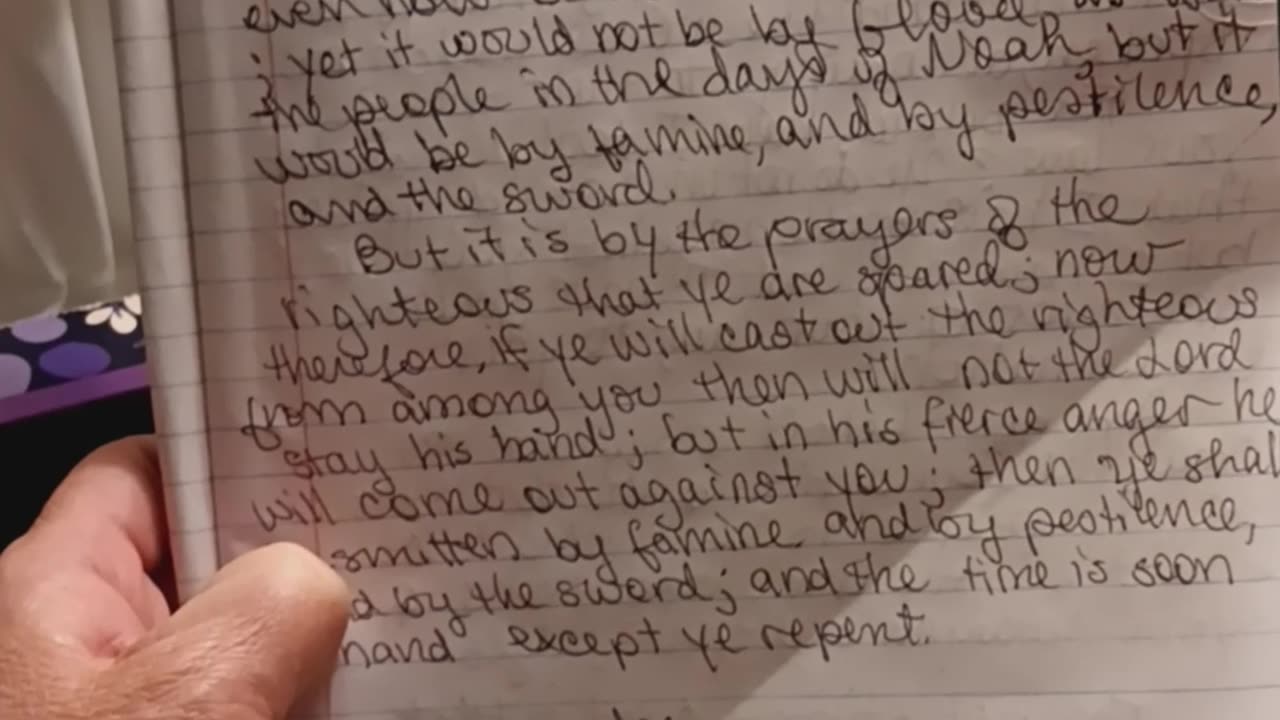 even now
; yet it would not be by flood, as
the people in the days of Noah, but it
would be by famine, and by pestilence,
and the sword.
But it is by the prayers of the
righteous that ye are spared; now
therefore, if ye will cast out the righteous
from among you then will not the Lord
stay his hand; but in his fierce anger he
will come out against you; then ye shal
smitten by famine and by pestilence,
d by the sword; and the time is soon
hand except ye repent.